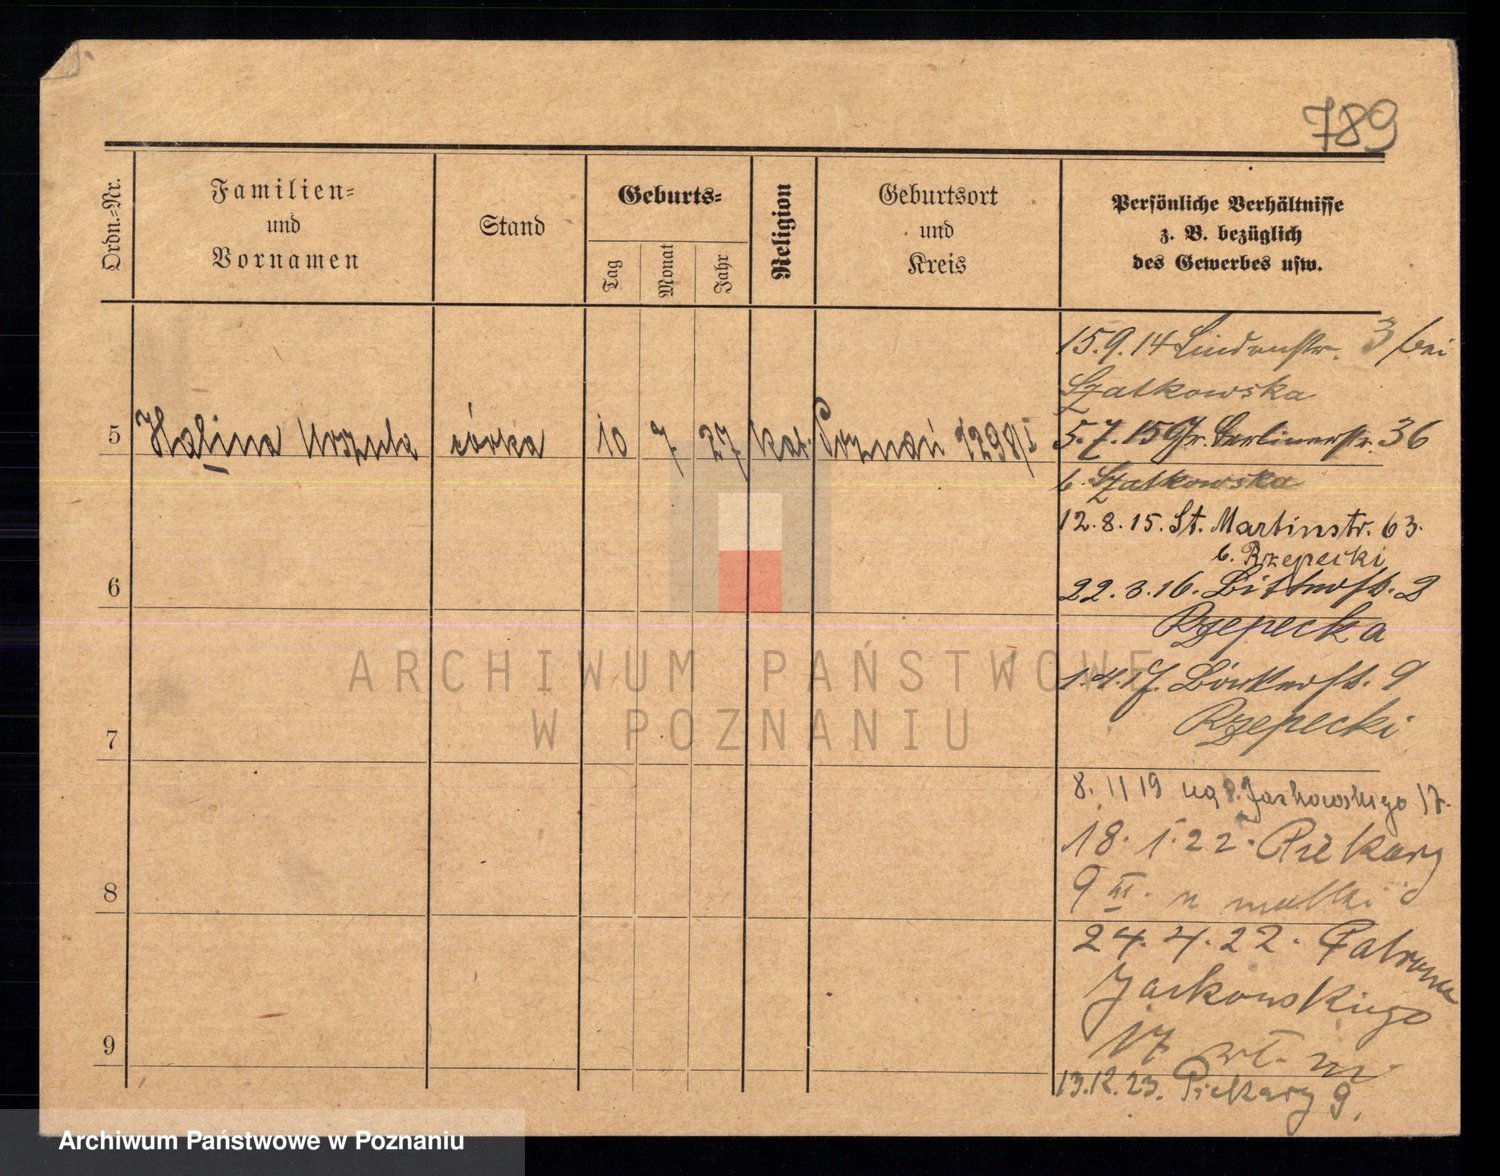 789
Ordn.-Nr.
Familien-
und
Vornamen
Stand
Geburts-
Tag
Monat
Jahr
Religion
Geburtsort
und
Kreis
Persönliche Verhältnisse
z. B. bezüglich
des Gewerbes usw.
15.9.14 Lindenstr. 3 bei
Szatkowska
5 Halina Urszula córka 10 7 27 kat. Poznań 2298/I
5.7.15 Gr. Berlinerstr. 36
b. Szatkowska
12.8.15. St. Martinstr. 63.
b. Rzepecki
6
22.3.16. 2
Rzepecka
1.4.17. 9
Rzepecki
7
8. 11 19 Jackowskiego 17.
18. 1. 22. Piekary
9 III. u matki
8
24. 4. 22. Patrona
Jackowskiego
17 wł. m.
9
13.12.23. Piekary 9.
ARCHIWUM PAŃSTWOWE
W POZNANIU
Archiwum Państwowe w Poznaniu